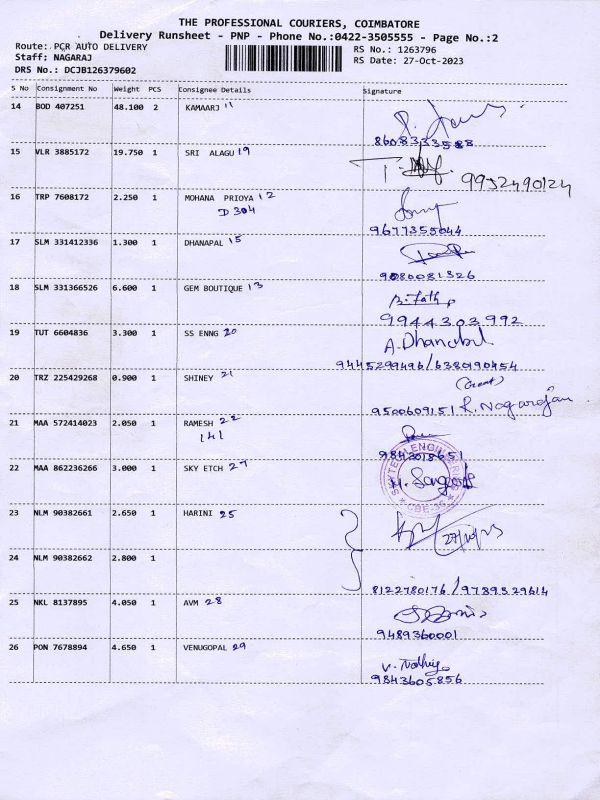 THE PROFESSIONAL COURIERS, COIMBATORE
Delivery Runsheet - PNP - Phone No.:0422-3505555 - Page No.:2
Route: PCR AUTO DELIVERY RS No.: 1263796
Staff: NAGARAJ RS Date: 27-Oct-2023
DRS No.: DCJB126379602
S No Consignment No Weight PCS Consignee Details Signature
14 BOD 407251 48.100 2 KAMAARJ 11
8608333588
15 VLR 3885172 19.750 1 SRI ALAGU 19
9952490124
16 TRP 7608172 2.250 1 MOHANA PRIOYA 12
D 304
9677355044
17 SLM 331412336 1.300 1 DHANAPAL 15
9080081326
18 SLM 331366526 6.600 1 GEM BOUTIQUE 13
9944303992
19 TUT 6604836 3.300 1 SS ENNG 20 A. Dhanabal
9445299496/6380990454
20 TRZ 225429268 0.900 1 SHINEY 21
9500609151 R. Nagarajan
21 MAA 572414023 2.050 1 RAMESH 22
141
9843018651
22 MAA 862236266 3.000 1 SKY ETCH 27
CBE-35
23 NLM 90382661 2.650 1 HARINI 25
27/10/23
24 NLM 90382662 2.800 1
8122780176/9789529614
25 NKL 8137895 4.050 1 AVM 28
9489360001
26 PON 7678894 4.650 1 VENUGOPAL 29
9843605856